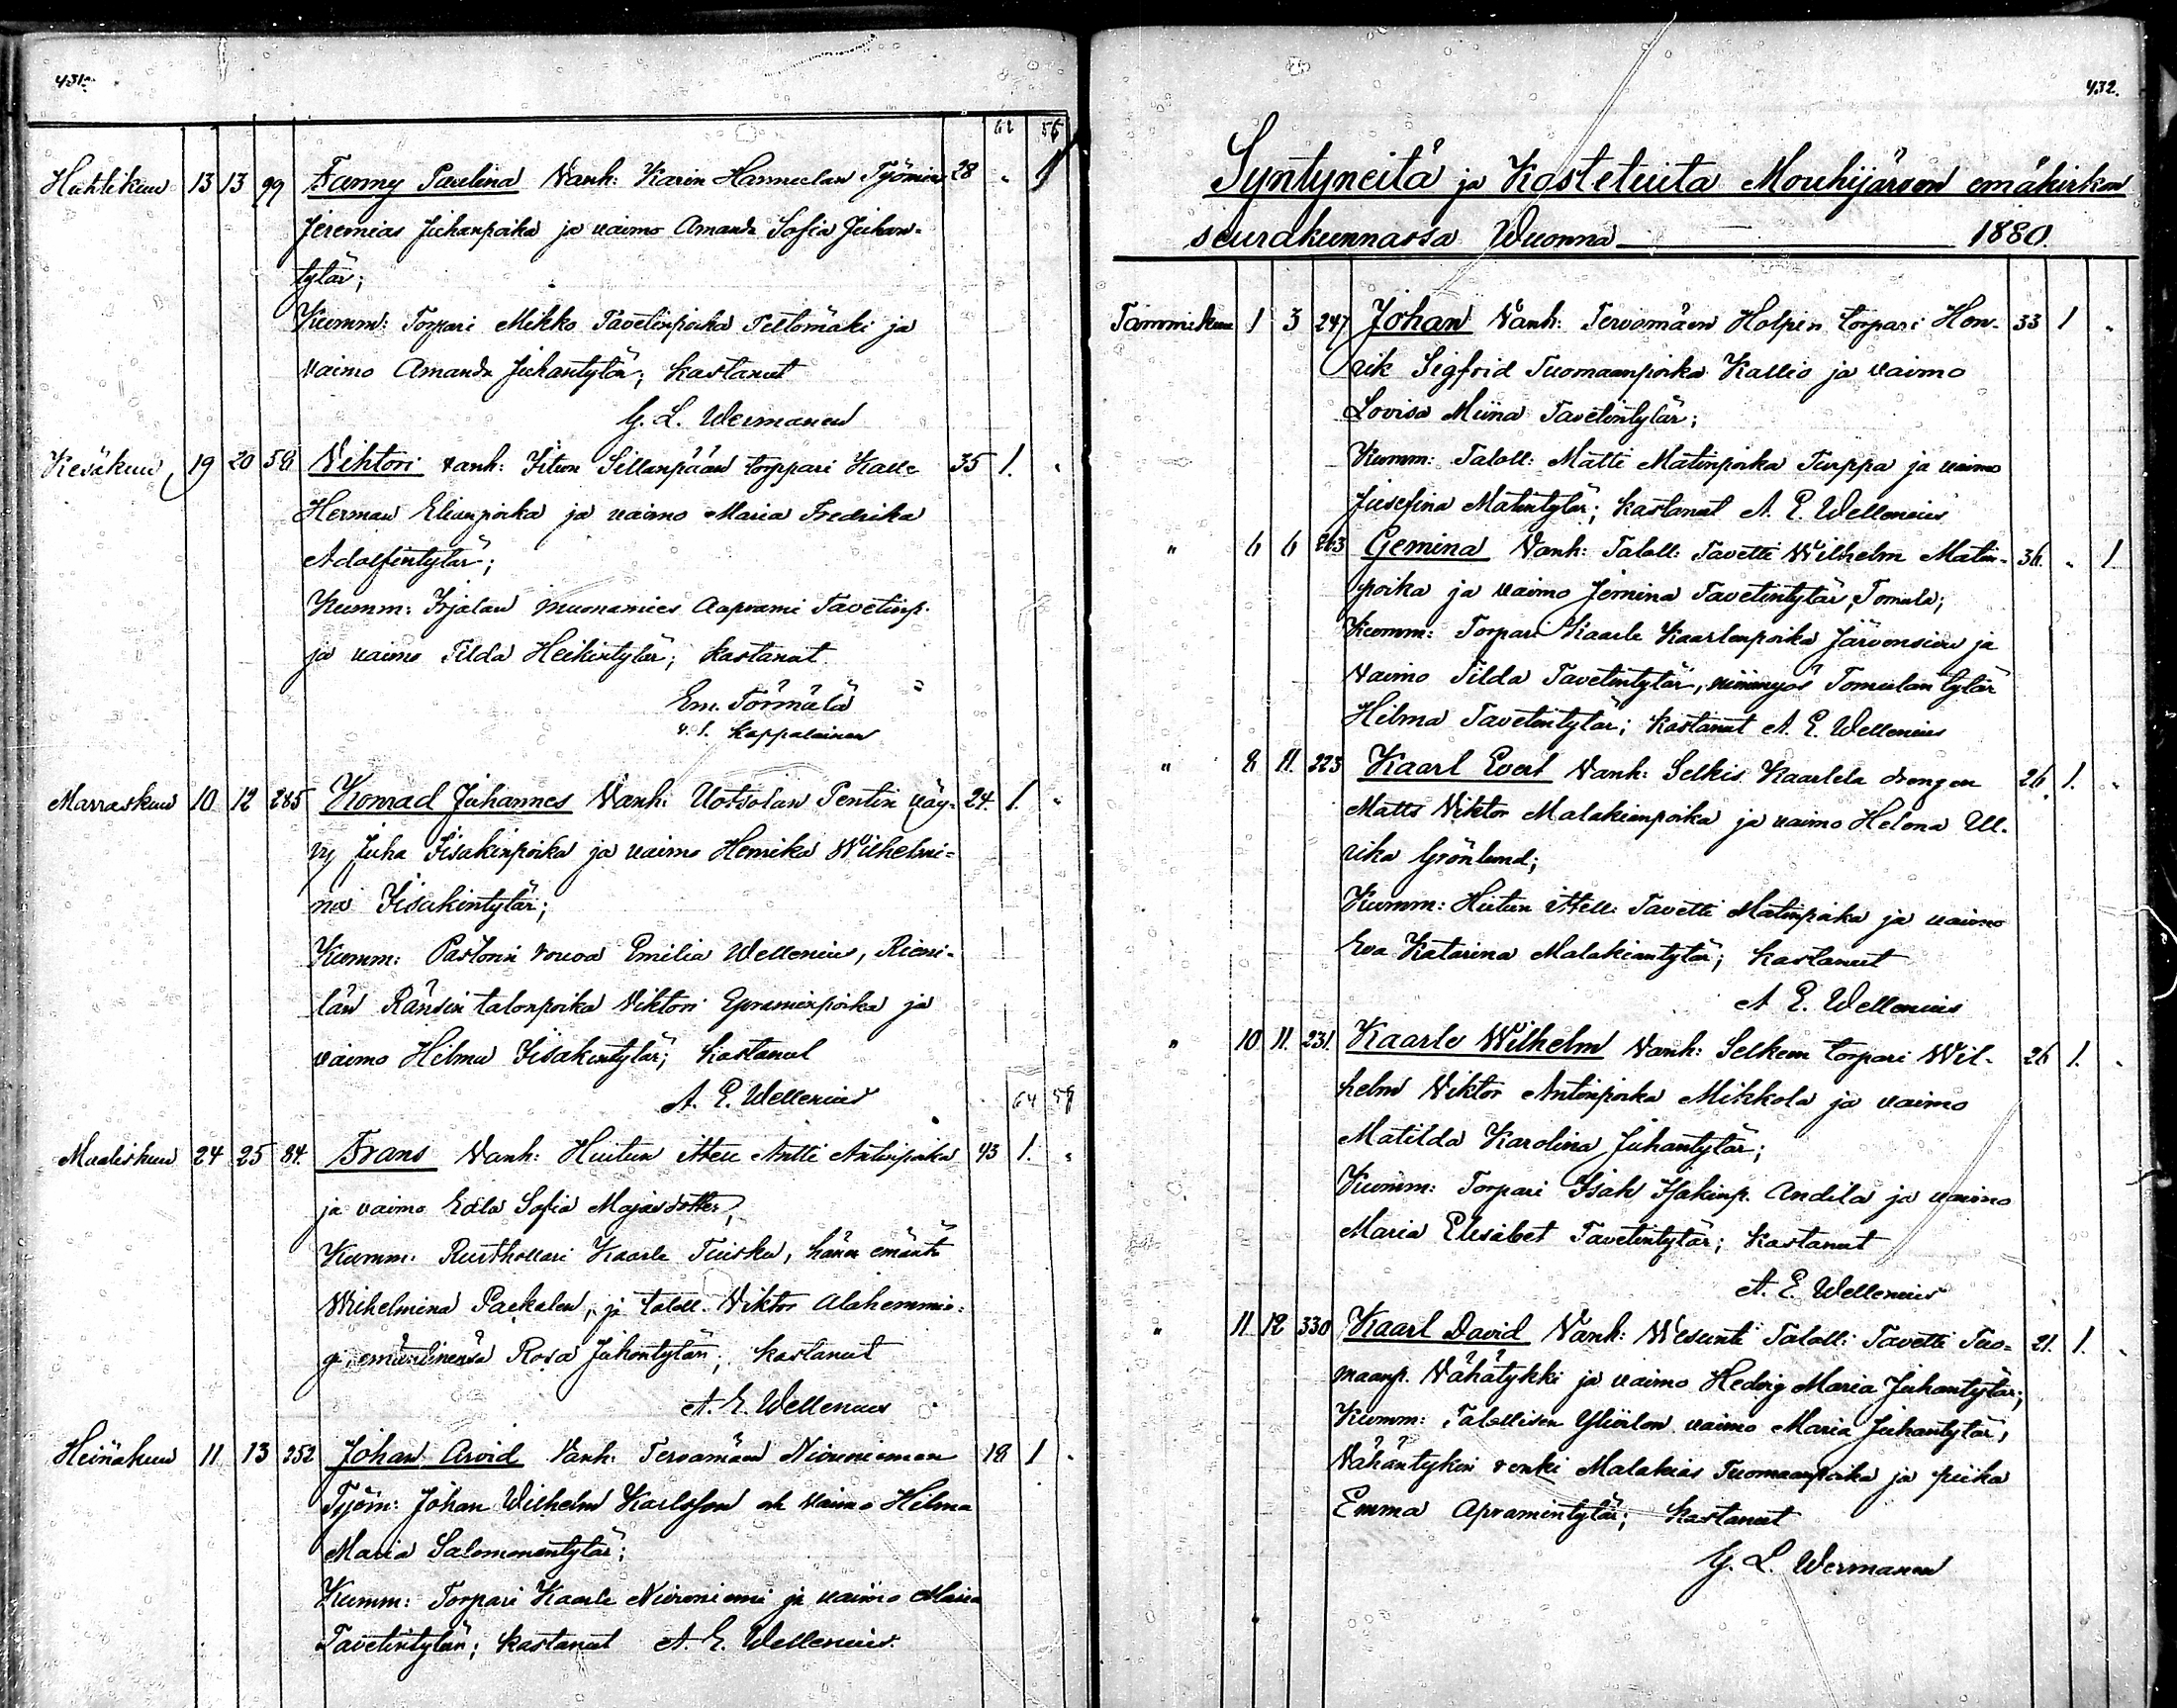 431.
62 56
Huhtikuu 13 13 99 Fanny Paulina Vanh: Karin Hannulan Työmies 28 „ 1
Jeremias Juhanpoika ja vaimo Amanda Sofia Juhan-
tytär;
Kumm: Torpari Mikko Tavetinpoika Peltomäki ja
vaimo Amanda Juhantytär; kastanut
G. L. Wermanen
Kesäkuu 19 20 58 Vihtori vanh: Iitun Sillanpään torppari Kalle 35 1. „
Herman Elianpoika ja vaimo Maria Fredrika
Adolfintytär;
Kumm: Irjalan muonamies Aaprami Tavetinp.
ja vaimo Tilda Heikintytär; kastanut
Em. Törmälä
v. t. Kappalainen
Marraskuu 10 12 285 Konrad Juhannes Vanh: Uotsolan Pentin väy- 24. 1. „
vy Juha Iisakinpoika ja vaimo Henrika Wilhelmi-
na Iisakintytär;
Kumm: Pastorin rouva Emilia Wellenius, Rieni-
län Ränsin talonpoika Viktori Epraminpoika ja
vaimo Hilma Iisakintytär; kastanut
A. E. Wellenius
64 58
Maaliskuu 24 25 84. Frans Vanh: Huitun Antti Antinpoika 43 1. „
ja vaimo Edla Sofia
Kumm: Rusthollari Kaarle Tuisku, hänen emäntä
Wilhelmina ja taloll. Viktor
Rosa Juhontytär; kastanut
A. E. Wellenius
Heinäkuu 11 13 252 Johan Arvid Vanh: Tervamäen Nironiemen 18 1 „
Työm: Johan Wilhelm Karlsson ok vaimo Hilma
Maria Salomonentytär;
Kumm: Torpari Kaarle Nironiemi ja vaimo Maria
Tavetintytär; kastanut A. E. Wellenius.
432.
Syntyneitä ja Kastetuita Mouhijärven emäkirkon
seurakunnassa Wuonna 1880.
Tammikuu 1 3 247 Johan Vanh: Tervamäen Holpin torpari Hen- 33 1 „
rik Sigfrid Tuomaanpoika Kallio ja vaimo
Lovisa Miina Tavetintytär;
Kumm: Taloll: Matti Matinpoika Turppa ja vaimo
Jusefina Matintytär; kastanut A. E. Wellenius
„ 6 6 263 Gemina Vanh: Taloll: Tavetti Wilhelm Matin- 36. „ 1
poika ja vaimo Jemina Tavetintytär, Tomula;
Kumm: Torpari Kaarle Kaarlenpoika Järvensivu ja
vaimo Tilda Tavetintytär, niinmyös Tomulan tytär
Hilma Tavetintytär; kastanut A. E. Wellenius
„ 8 11. 223 Kaarl Evert Vanh: Selkis Kaarlela drengen 26. 1. „
Matts Viktor Malakianpoika ja vaimo Helena Ul-
rika Grönlund;
Kumm: Huitun Tavetti Matinpoika ja vaimo
Eva Katarina Malakiantytär; kastanut
A. E. Wellenius
„ 10 11. 231. Kaarle Wilhelm Vanh: Selkeen torpari Wil- 26 1. „
helm Viktor Antinpoika Mikkola ja vaimo
Matilda Karolina Juhantytär;
Kumm: Torpari Isak Isakinp. Andila ja vaimo
Maria Elisabet Tavetintytär; kastanut
A. E. Wellenius
„ 11 12 330 Kaarl David Vanh: Wesunti Taloll: Tavetti Tuo- 21. 1. „
maanp. Vähätykki ja vaimo Hedvig Maria Juhantytär;
Kumm: Talollisen vaimo Maria Juhantytär,
Vähäntykin renki Malakias Tuomaanpoika ja piika
Emma Apramintytär; kastanut
G. L. Wermanen